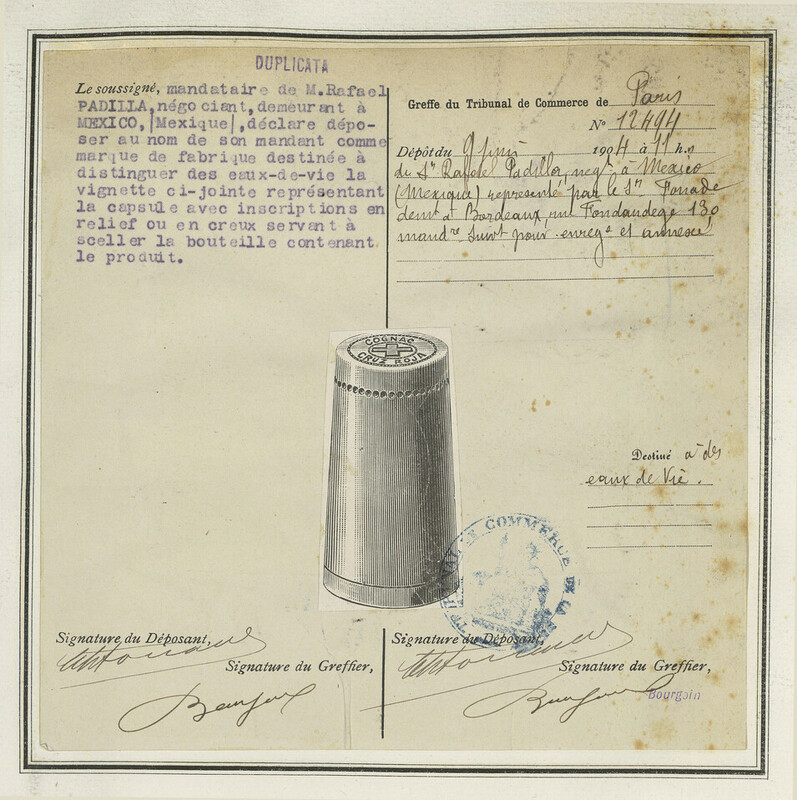 DUPLICATA
Le soussigné, mandataire de M.Rafael
PADILLA,négociant,demeurant à
MEXICO,|Mexique|,déclare dépo-
ser au nom de son mandant comme
marque de fabrique destinée à
distinguer des eaux-de-vie la
vignette ci-jointe représentant
la capsule avec inscriptions en
relief ou en creux servant à
sceller la bouteille contenant
le produit.
Greffe du Tribunal de Commerce de Paris
N° 12494
Dépôt du 9 juin 1904 à 11 h.s
du Sr Rafael Padilla, negt à Mexico
(Mexique) représenté par le Sr
demt à Bordeaux, rue Fondaudege 130
mandre suivt pouv. enregé et annexé
COGNAC
CRUZ ROJA
Destiné à des
eaux de Vie.
TRIBUNAL DE COMMERCE DE LA
Signature du Déposant,
Signature du Greffier,
Signature du Déposant,
Signature du Greffier,
Bourgoin